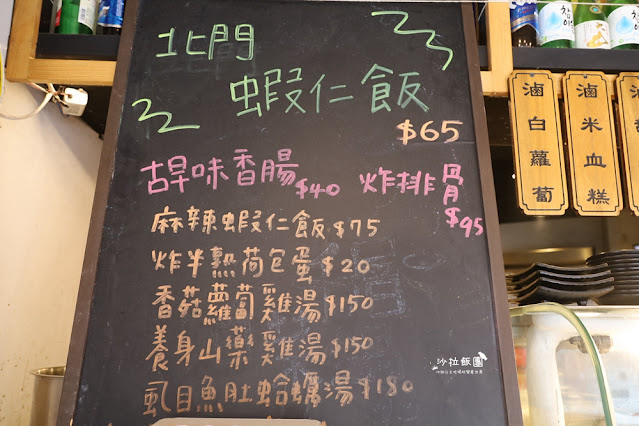 北門
蝦仁飯
$65
古早味香腸$40 炸排骨$95
麻辣蝦仁飯$75
炸半熟荷包蛋$20
香菇蘿蔔雞湯$150
養身山藥雞湯$150
虱目魚肚蛤蠣湯$180
滷白蘿蔔
滷米血糕
沙拉飯團